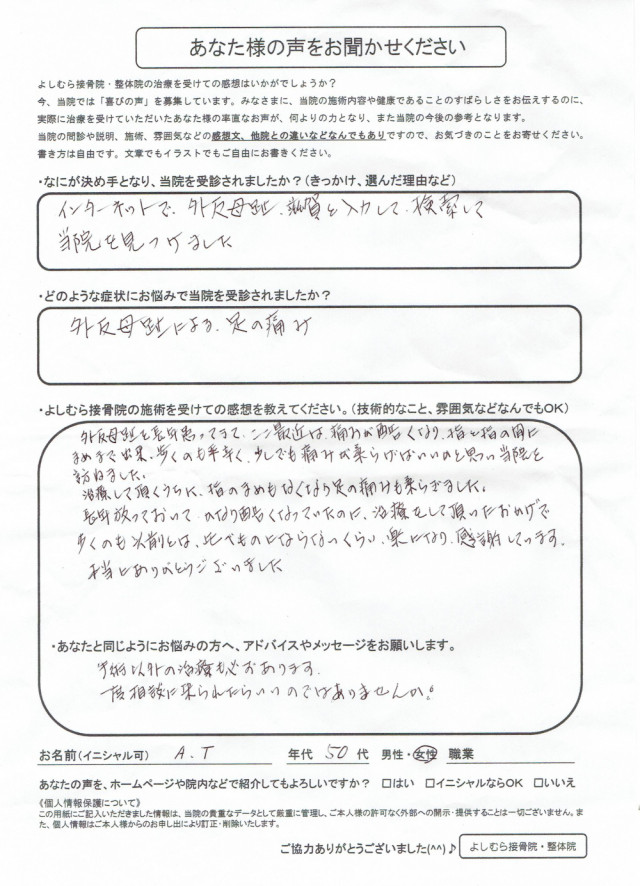 あなた様の声をお聞かせください
よしむら接骨院・整体院の治療を受けての感想はいかがでしょうか？
今、当院では「喜びの声」を募集しています。みなさまに、当院の施術内容や健康であることのすばらしさをお伝えするのに、
実際に治療を受けていただいたあなた様の率直なお声が、何よりの力となり、また当院の今後の参考となります。
当院の問診や説明、施術、雰囲気などの感想文、他院との違いなどなんでもありですので、お気づきのことをお寄せください。
書き方は自由です。文章でもイラストでもご自由にお書きください。
・なにが決め手となり、当院を受診されましたか？（きっかけ、選んだ理由など）
インターネットで、外反母趾、滋賀と入力して、検索して
当院を見つけました
・どのような症状にお悩みで当院を受診されましたか？
外反母趾による、足の痛み
・よしむら接骨院の施術を受けての感想を教えてください。（技術的なこと、雰囲気などなんでもOK）
外反母趾を長年患ってきて、ここ最近は、痛みが酷くなり、指と指の間に
まめまで出来、歩くのも辛く、少しでも痛みが柔らげばいいのと思い当院を
訪ねました。
治療して頂くうちに、指のまめもなくなり足の痛みも柔らぎました。
長年放っておいて、かなり酷くなっていたのに、治療をして頂いたおかげで
歩くのも以前とは、比べものにならないくらい、楽になり、感謝しています。
本当にありがとうございました
・あなたと同じようにお悩みの方へ、アドバイスやメッセージをお願いします。
手術以外の治療も必ずあります。
一度相談に来られたらいいのではありませんか。
お名前（イニシャル可） A.T 年代 50 代 男性・女性 職業
あなたの声を、ホームページや院内などで紹介してもよろしいですか？ □はい □イニシャルならOK □いいえ
《個人情報保護について》
この用紙にご記入いただきました情報は、当院の貴重なデータとして厳重に管理し、ご本人様の許可なく外部への開示・提供することは一切ございません。ま
た、個人情報はご本人様からのお申し出により訂正・削除いたします。
ご協力ありがとうございました(^^)♪ よしむら接骨院・整体院